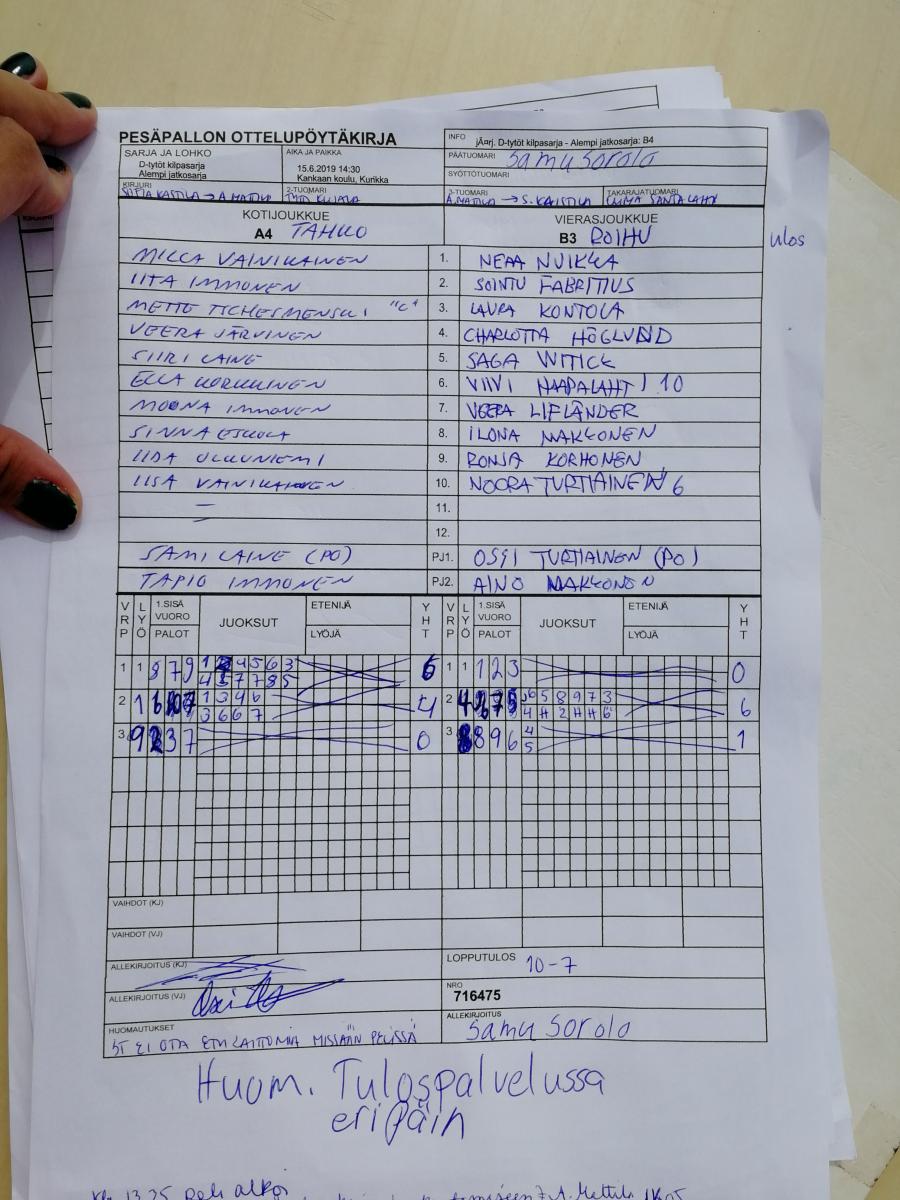 PESÄPALLON OTTELUPÖYTÄKIRJA
INFO jÄ¤rj. D-tytöt kilpasarja - Alempi jatkosarja: B4
SARJA JA LOHKO
D-tytöt kilpasarja
Alempi jatkosarja
AIKA JA PAIKKA
15.6.2019 14:30
Kankaan koulu, Kurikka
PÄÄTUOMARI Samu Sorola
SYÖTTÖTUOMARI
KIRJURI
2-TUOMARI
3-TUOMARI A.MATTILA → S.KAISTILA
TAKARAJATUOMARI EMMA SANTALAHTI
KOTIJOUKKUE
A4 TAHKO
VIERASJOUKKUE
B3 ROIHU
ulos
MILLA VAINIKAINEN 1. NEAA NUIKKA
IITA IMMONEN 2. SOINTU FABRITIUS
METTE TSCHESMENSKI "C" 3. LAURA KONTOLA
VEERA JÄRVINEN 4. CHARLOTTA HÖGLUND
SIIRI LAINE 5. SAGA WITICK
ELLA KORKKINEN 6. VIIVI HAAPALAHTI 10
MOONA IMMONEN 7. VEERA LIFLÄNDER
SINNA ESKOLA 8. ILONA MAKKONEN
IIDA OLKUNIEMI 9. RONJA KORHONEN
IISA VAINIKAINEN 10. NOORA TURTIAINEN 6
— 11.
12.
SAMI LAINE (PO) PJ1. OSSI TURTIAINEN (PO)
TAPIO IMMONEN PJ2. AINO MAKKONEN
VRP LYÖ 1.SISÄ VUORO PALOT JUOKSUT ETENIJÄ LYÖJÄ YHT VRP LYÖ 1.SISÄ VUORO PALOT JUOKSUT ETENIJÄ LYÖJÄ YHT
1 1 8 7 9 4 5 6 3 6 1 1 1 2 3 0
7 7 8 5
2 1 1 3 4 6 4 2 5 8 9 7 3 6
3 6 6 7 4 H 2 H H 6
3 9 3 7 0 3 8 9 6 4 1
5
VAIHDOT (KJ)
VAIHDOT (VJ)
ALLEKIRJOITUS (KJ)
LOPPUTULOS 10-7
ALLEKIRJOITUS (VJ)
NRO
716475
HUOMAUTUKSET
ST EI OTA ETULAITTOMIA MISSÄÄN PELISSÄ
ALLEKIRJOITUS
Samu Sorola
Huom. Tulospalvelussa
eripäin
Klo 13.25 peli alkoi